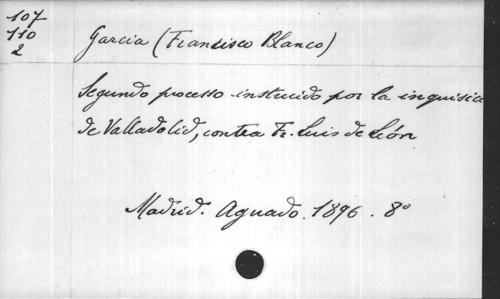 107
110
2
Garcia (Francisco Blanco)
Segundo processo instruido por la inquisici
de Valladolid, contra Fr. Luis de León
Madrid. Aguado. 1896. 8º